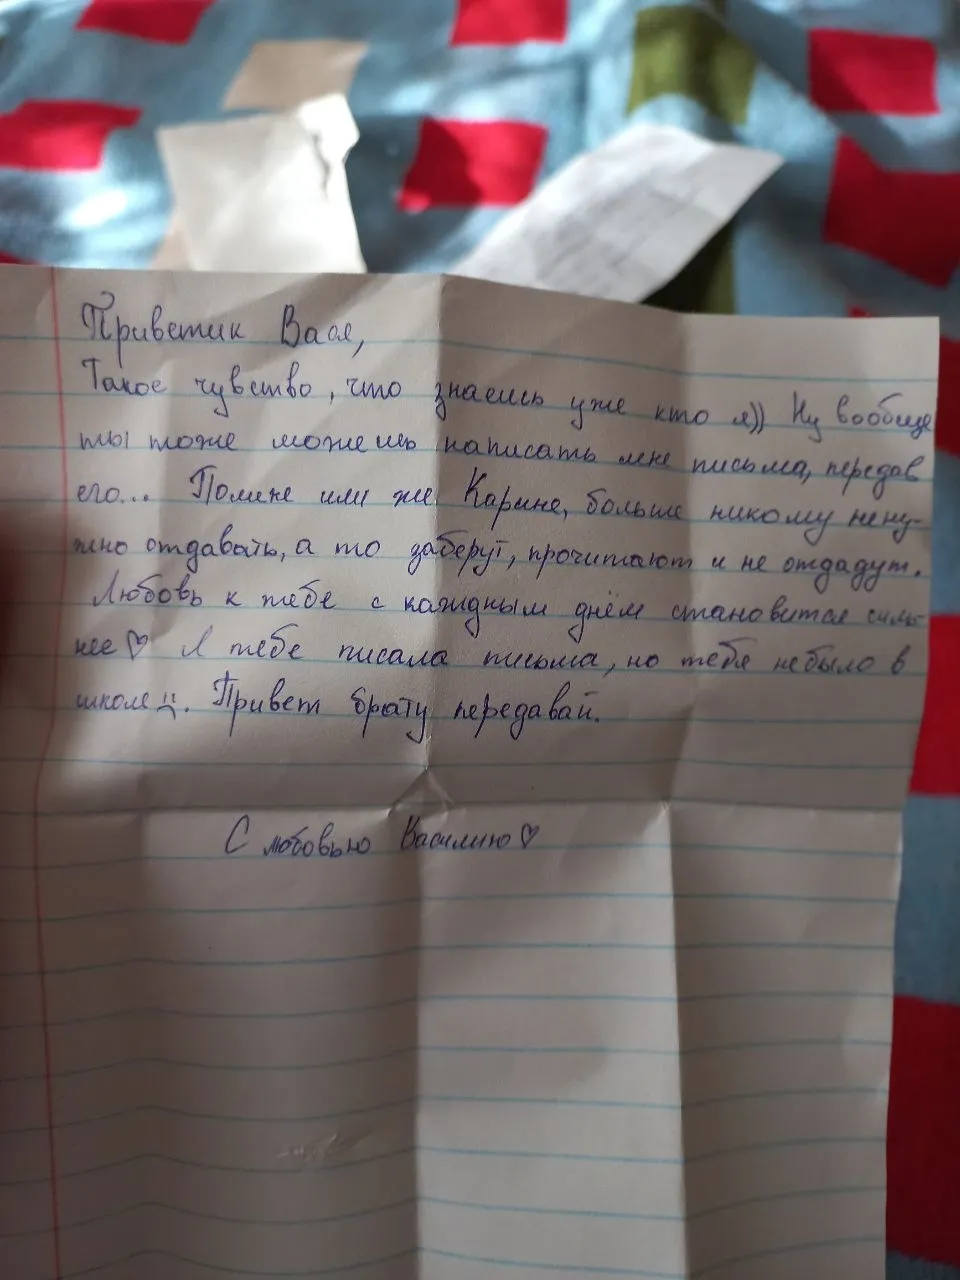 Приветик Вася,
Такое чувство, что знаешь уже кто я)) Ну вообще
ты тоже можешь написать мне письма, передав
его... Полине или же Карине, больше никому нену-
жно отдавать, а то заберут, прочитают и не отдадут.
Любовь к тебе с каждным днём становится силь-
нее♡ Я тебе писала письма, но тебя небыло в
школе. Привет брату передавай.
С любовью Василию♡